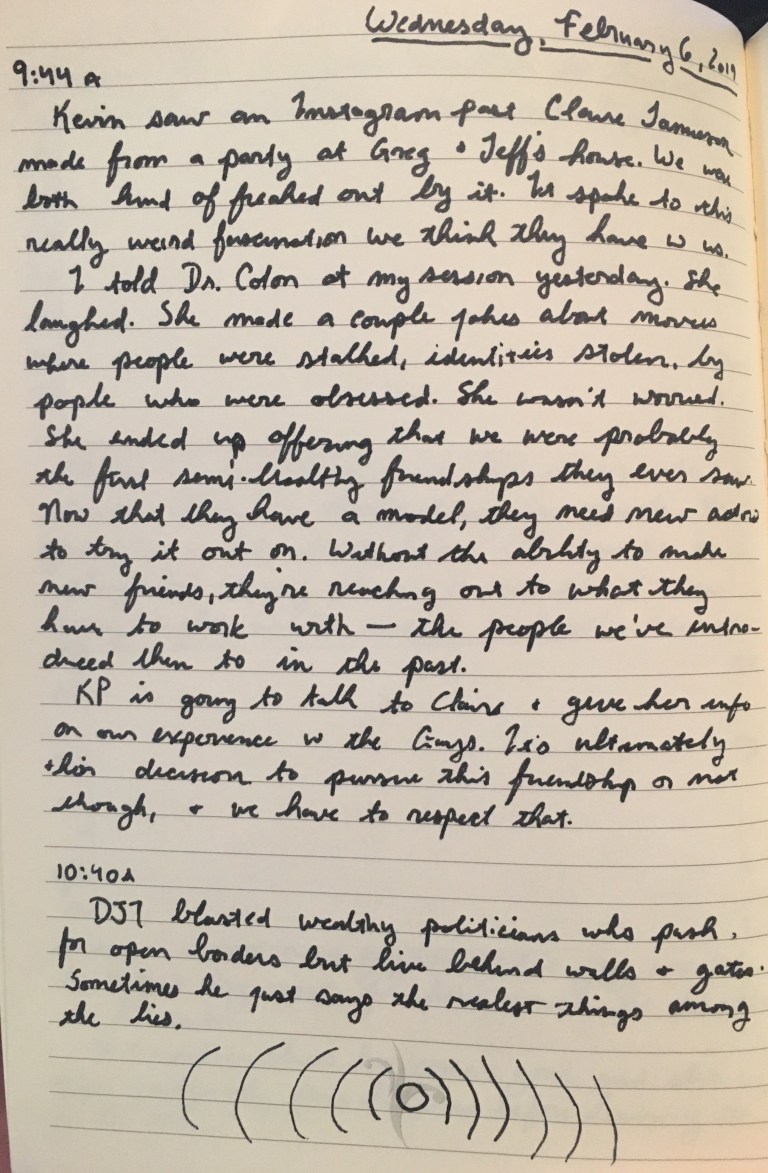 Wednesday, February 6, 2019
9:44 A
Kevin saw an Instagram post Claire Jamieson
made from a party at Greg + Jeff's house. We were
both kind of freaked out by it. It spoke to this
really weird fascination we think they have w us.
I told Dr. Colon at my session yesterday. She
laughed. She made a couple jokes about movies
where people were stalked, identities stolen, by
people who were obsessed. She wasn't worried.
She ended up offering that we were probably
the first semi-healthy friendships they ever saw.
Now that they have a model, they need new
to try it out on. Without the ability to make
new friends, they're reaching out to what they
have to work with — the people we've intro-
duced them to in the past.
KP is going to talk to Claire + give her info
on our experience w the Guys. It's ultimately
decision to pursue this friendship or not
though, + we have to respect that.
10:40A
DJT blasted wealthy politicians who push
for open borders but live behind walls + gates.
Sometimes he just says the realest things among
the lies.